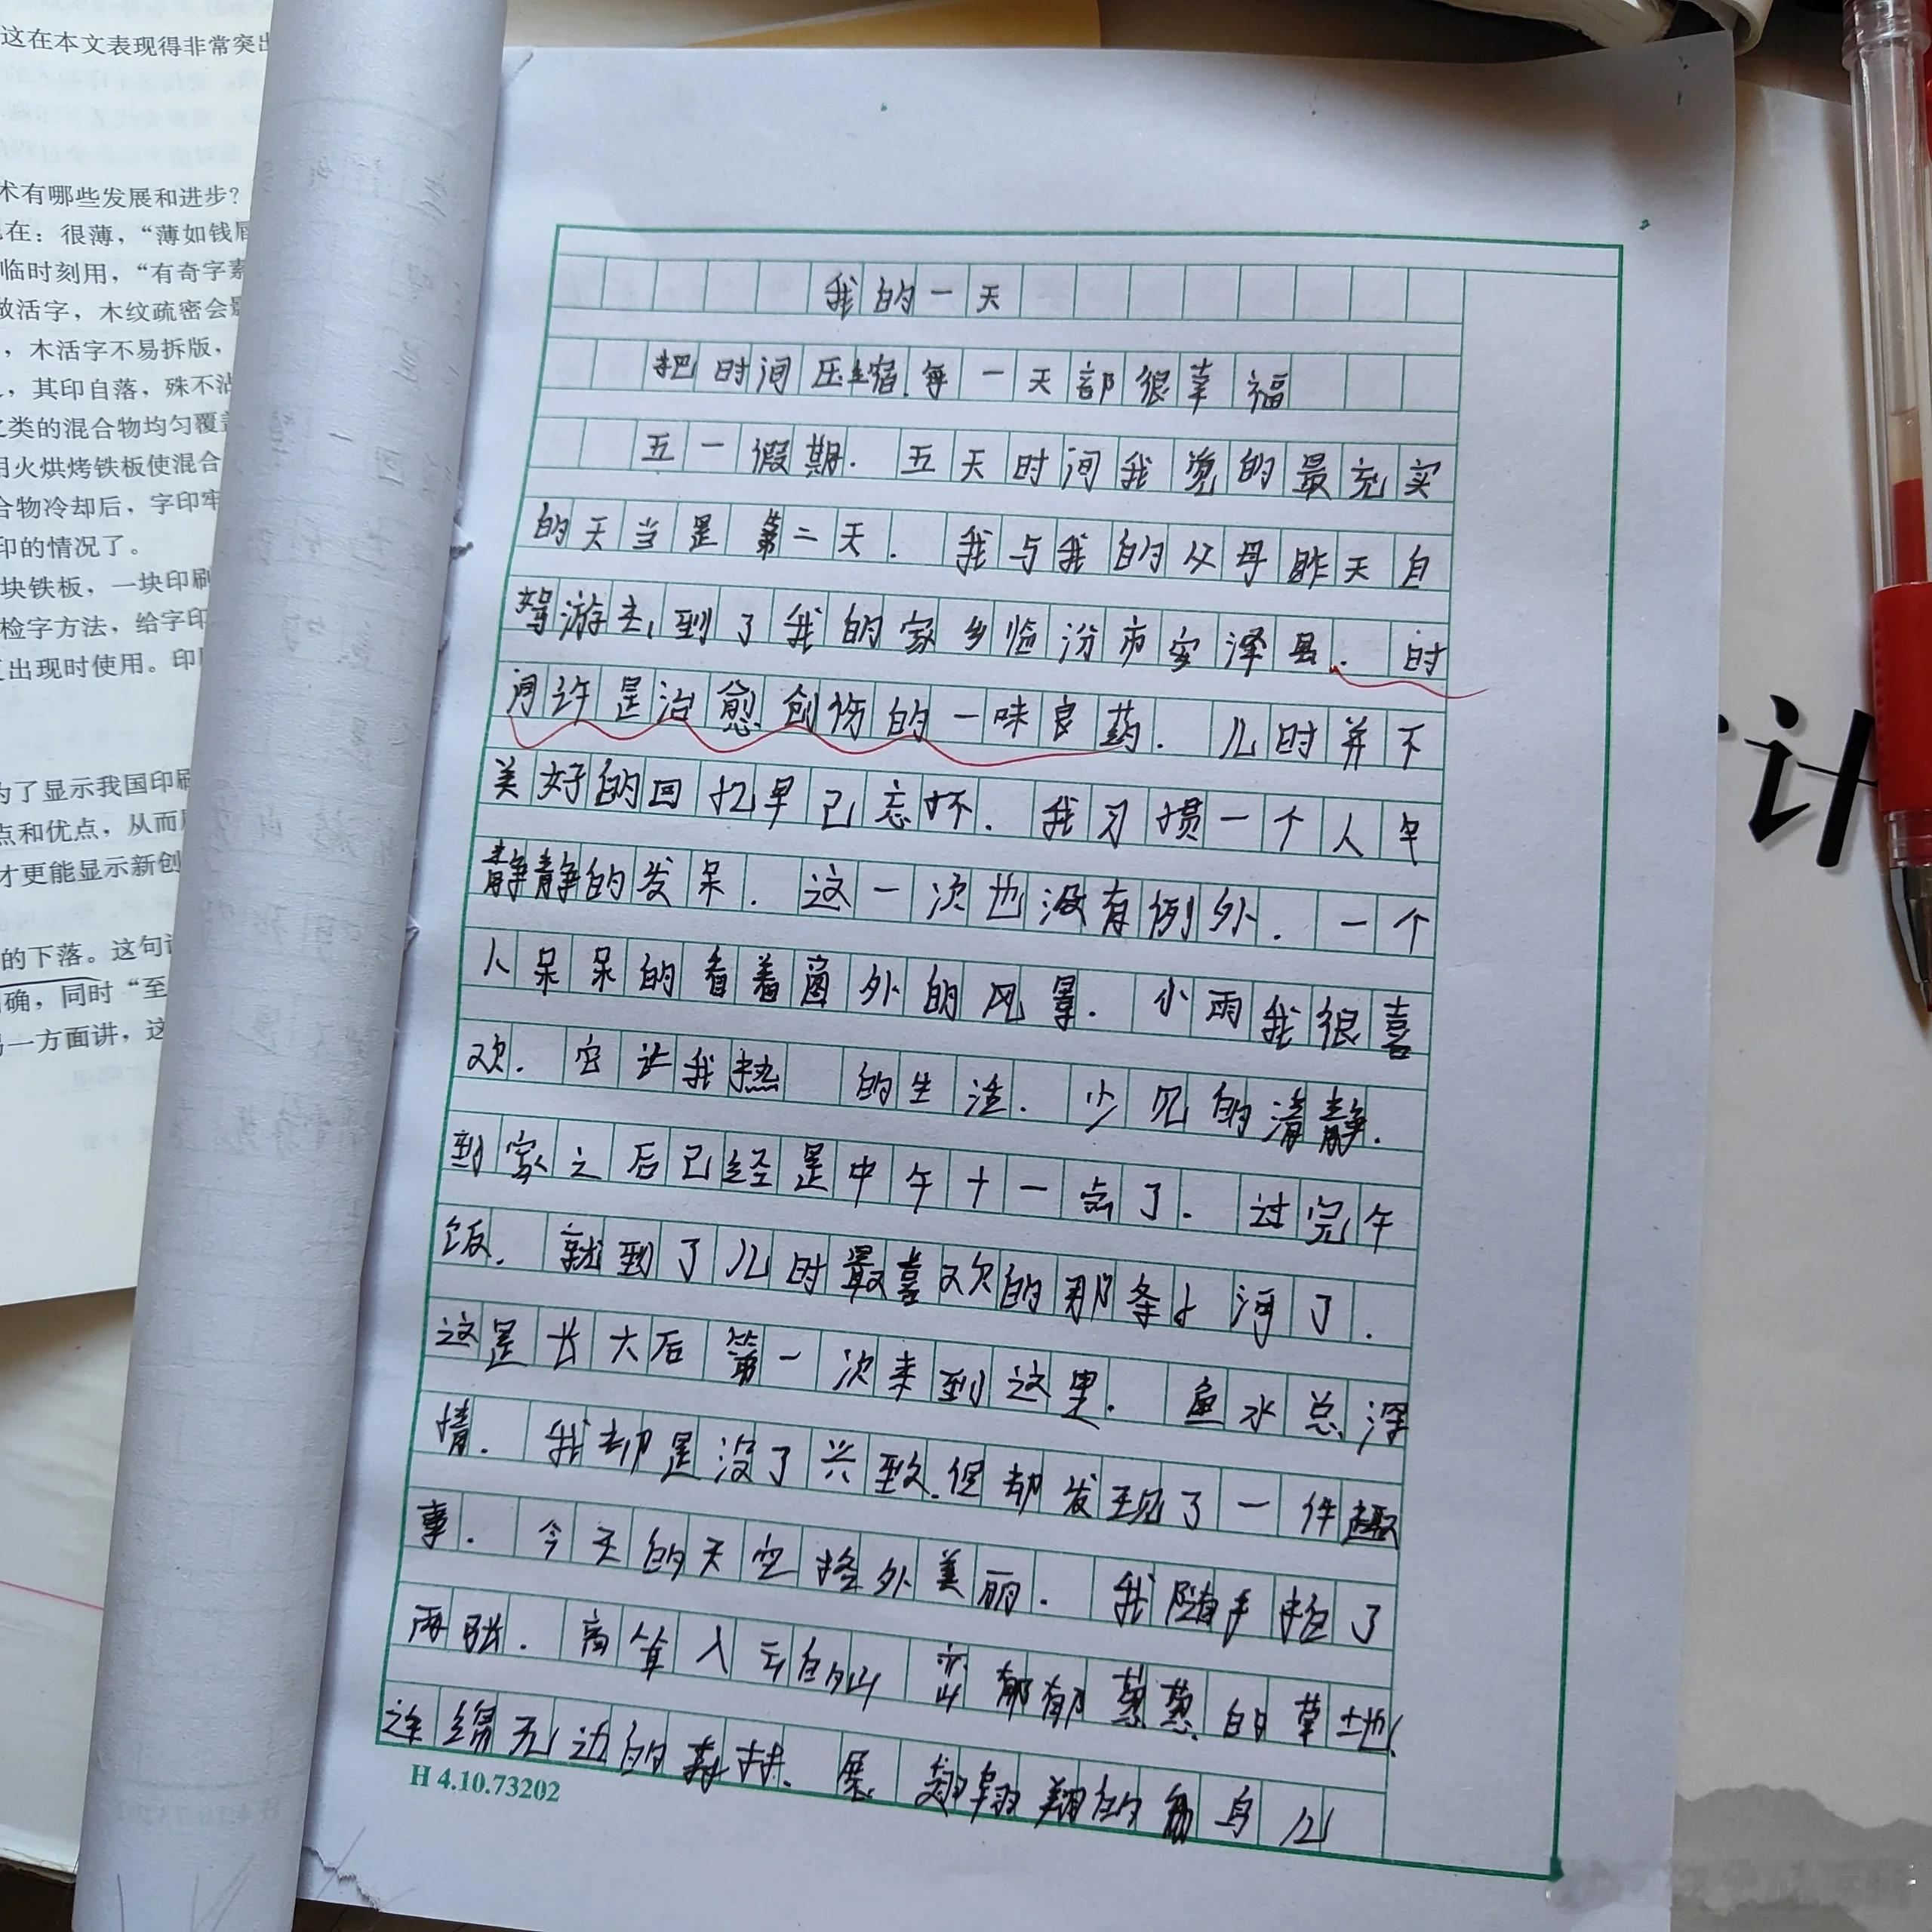 这在本文表现得非常突出
术有哪些发展和进步？
在：很薄，“薄如钱唇
临时刻用，“有奇字素
做活字，木纹疏密会影
，木活字不易拆版，
，其印自落，殊不沾
之类的混合物均匀覆盖
用火烘烤铁板使混合
合物冷却后，字印牢
印的情况了。
块铁板，一块印刷
检字方法，给字印
出现时使用。印
为了显示我国印刷
点和优点，从而
才更能显示新创
的下落。这句
确，同时“至
另一方面讲，这
我的一天
把时间压缩.每一天都很幸福
五一假期. 五天时间我觉的最充实
的天当是第二天. 我与我的父母昨天自
驾游去,到了我的家乡临汾市安泽县. 时
间许是治愈创伤的一味良药. 儿时并不
美好的回忆早已忘怀. 我习惯一个人
静静的发呆. 这一次也没有例外. 一个
人呆呆的看着窗外的风景. 小雨我很喜
欢. 它让我热 的生活. 少见的清静.
到家之后已经是中午十一点了. 过完午
饭. 就到了儿时最喜欢的那条小河了.
这是长大后第一次来到这里. 鱼水总深
情. 我却是没了兴致.但却发现了一件趣
事. 今天的天空格外美丽. 我随手拍了
两张. 高耸入云的山峦 郁郁葱葱的草地、
连绵无边的森林、展翅翱翔的 鸟儿
H 4.10.73202
计